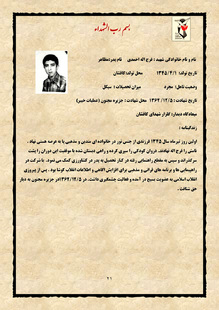 بسم رب الشهداء
نام و نام خانوادگی شهید : فرج اله احمدی    نام پدر : مظاهر
تاریخ تولد: ۱۳۴۵/۴/۱    محل تولد: کاشان
وضعیت تاهل: مجرد    میزان تحصیلات : سیکل
تاریخ شهادت : ۱۳۶۲/۱۲/۵    محل شهادت : جزیره مجنون (عملیات خیبر)
میعادگاه دیدار: گلزار شهدای کاشان
زندگینامه :
اولین روز تیر ماه سال ۱۳۴۵ فرزندی از جنس نور در خانواده ای متدین و مذهبی پا به عرصه هستی نهاد .
نامش را فرج اله نهادند. دوران کودکی را سپری کرده و راهی دبستان شده با موفقیت این دوران را پشت
سر گذراند و سپس به مقطع راهنمایی رفته در کنار تحصیل به پدر در کشاورزی کمک می نمود. با شرکت در
راهپیمایی ها و برنامه های قرآنی و مذهبی برای افزایش آگاهی و اطلاعات انقلاب کوشا بود . پس از پیروزی
انقلاب اسلامی به عضویت بسیج در آمده و فعالیت چشمگیری داشت. در ۱۳۶۲/۱۲/۵ در جزیره مجنون به دیدار
حق شتافت .
۲۱